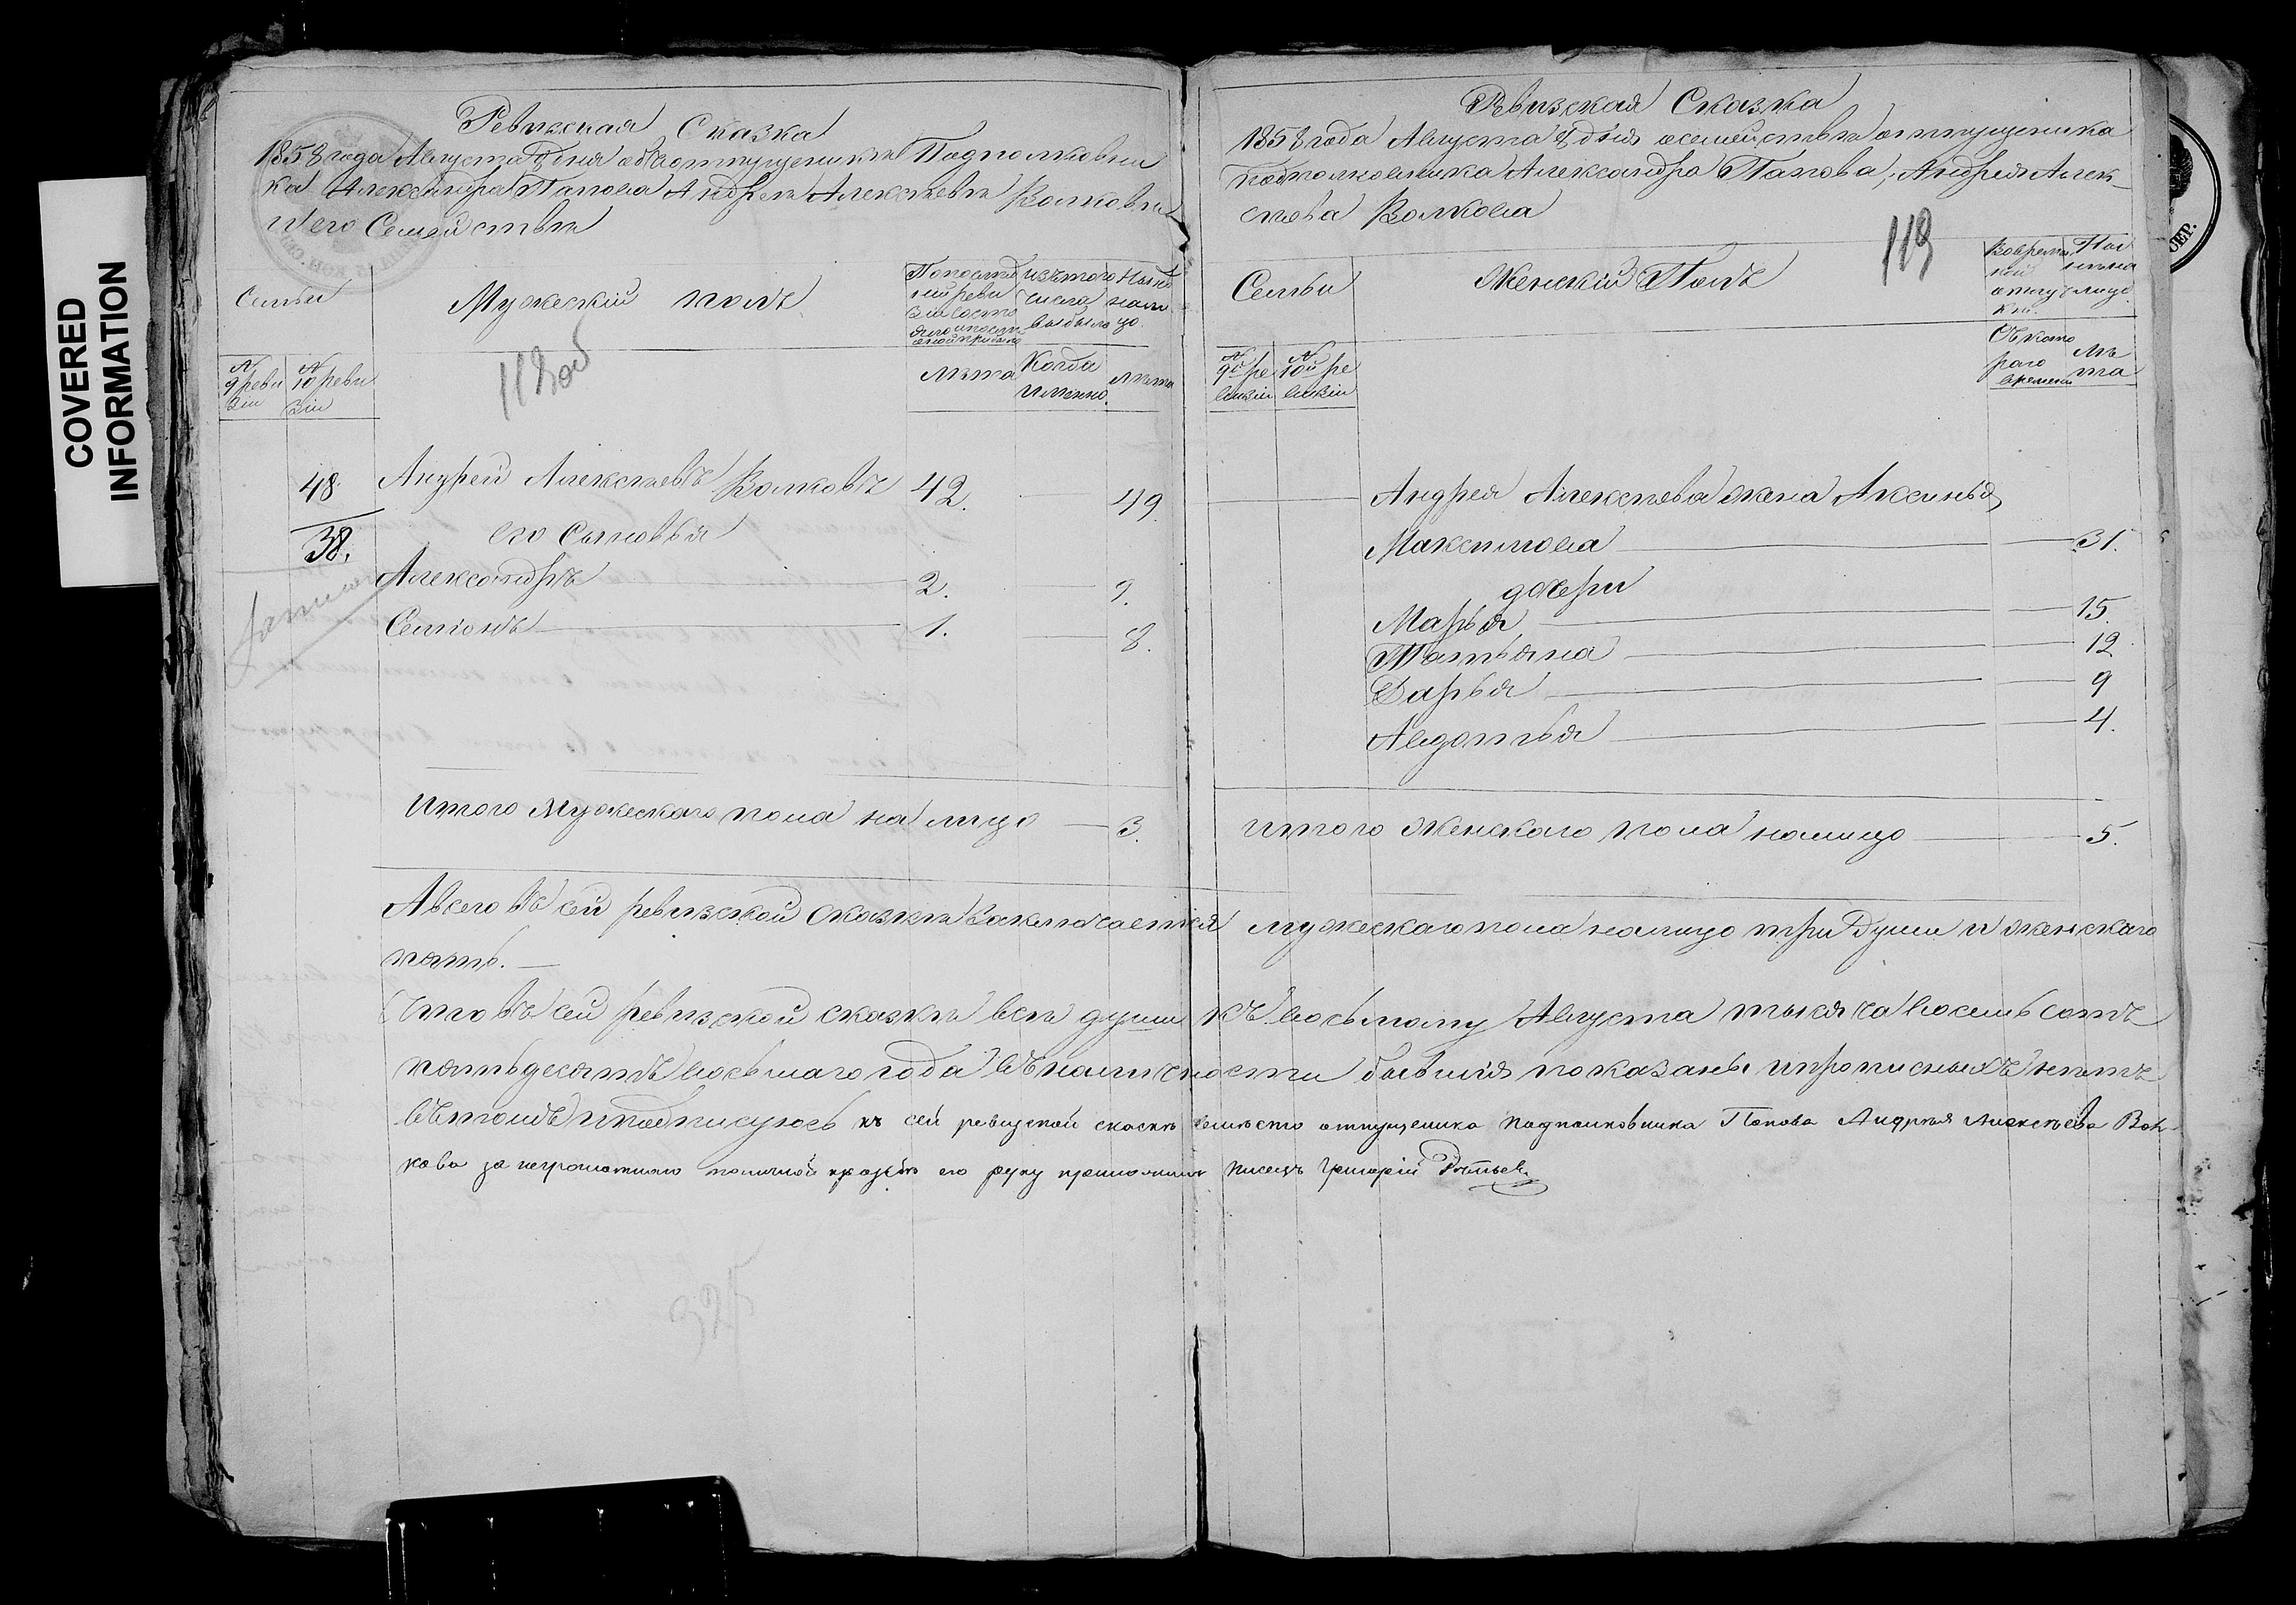 COVERED
INFORMATION
Ревизская Сказка
1858 года Августа 8 дня объ отпущенникѣ Подполковни
ка Александра Папова Андреѣ Алексѣевѣ Волковѣ
и его Семействѣ
Семьи
Мужескій полъ
По послѣд
ней реви
зіи состо
яло и послѣ
оной прибыло
изъ того
числа
выбыло
Нынѣ
нали
цо
№
9 реви
зіи
№
10 реви
зіи
лѣта
Когда
именно.
лѣта
118 об
48.
38.
Андрей Алексѣевъ Волковъ 42. 49.
его Сыновья
Александръ 2. 9.
Семіонъ 1. 8.
Итого Мужескаго пола на лицо 3.
Ревизская Сказка
1858 года Августа 8 дня о семействѣ отпущенника
Подполковника Александра Папова, Андрея Алек-
сѣева Волкова
119
Семьи
Женскій Полъ
Во време
нной
отлуч
кѣ.
Нынѣ на
лицо.
№
9й ре
визіи
№
10й ре
визіи
Съ кото
раго
времени
лѣ
та
Андрея Алексѣева жена Аксинья
Максимова 31.
дочери
Марья 15.
Татьяна 12
Дарья 9
Авдотья 4.
итого Женскаго пола налицо 5.
А всего въ сей ревизской сказкѣ заключается мужескаго пола налицо три души и женскаго
пять.
Что въ сей ревизской сказкѣ всѣ души къ восьмому Августа тысяча восемьсотъ
пятьдесятъ восьмаго года въ наличности бывшія показаны и прописныхъ нѣтъ
въ томъ и подписуюсь къ сей ревизской скаскѣ вмѣсто отпущеника падполковника Попова Андрѣя Алексѣева Вол-
кова за неграмотнаго по личной прозьбѣ его руку приложилъ писецъ Григорій